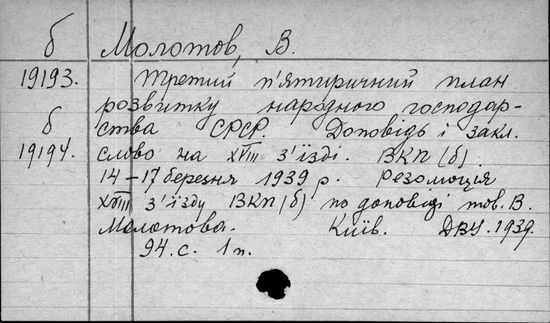 б Молотов, В.
19193. Третий п'ятиричний план
розвитку народного господар-
б ства СРСР. Доповідь і закл.
19194. слово на XVIII з'їзді. ВКП(б).
14-17 березня 1939 р. Резолюція
XVIII з'їзду ВКП(б) по доповіді тов. В.
Молотова. Київ. ДВУ. 1939.
94. с. 1 п.